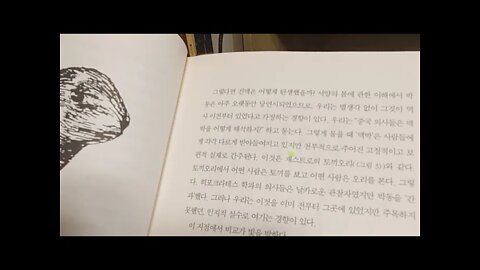 그렇다면 진맥은 어떻게 탄생했을까? 서양의 몸에 관한 이해에서 박
동은 아주 오랫동안 당연시되었으므로, 우리는 별생각 없이 그것이 역
사 이전부터 있었다고 가정하는 경향이 있다. 우리는 "중국 의사들은 맥
박을 어떻게 해석하지?" 하고 묻는다. 그렇게 물을 때 '맥박'은 사람들에
게 각각 다르게 받아들여지고 있지만 선천적으로 주어진 고정적이고 보
편적 실재로 간주된다. 이것은 재스트로의 토끼오리(그림 3)와 같다.
토끼오리에서 어떤 사람은 토끼를 보고 어떤 사람은 오리를 본다. 그렇
다. 히포크라테스 학파의 의사들은 날카로운 관찰자였지만 박동을 '간
과'했다. 그러나 우리는 이것을 이미 전부터 그곳에 있었지만 주목하지
못했던, 인지적 실수로 여기는 경향이 있다.
이 지점에서 비교가 빛을 발한다.